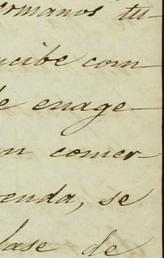 ermanos tu-
ncibe com-
de enage-
on comer-
enda, se
lase de